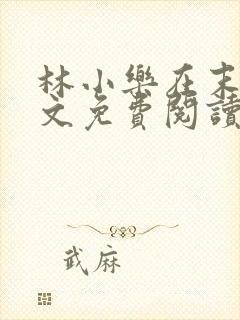 林小樂在末
文免費閱讀
武麻